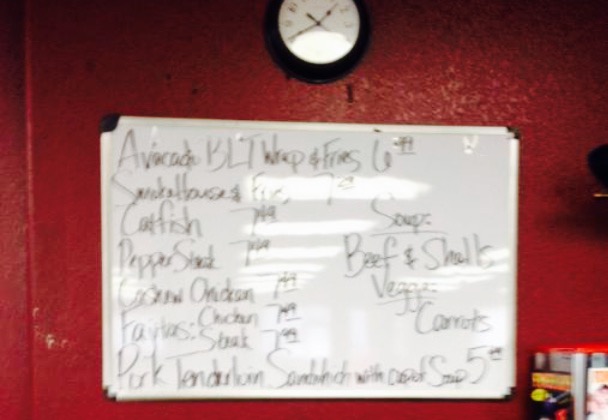 Avacado BLT Wrap & Fries 6.99
Smokehouse & Fries 7
Catfish 7.49
Pepper Steak 7.49
Cashew Chicken 7.49
Fajitas: Chicken 7.49
Steak 7.99
Pork Tenderloin Sandwhich with cup of Soup 5
Soup:
Beef & Shells
Veggie:
Carrots